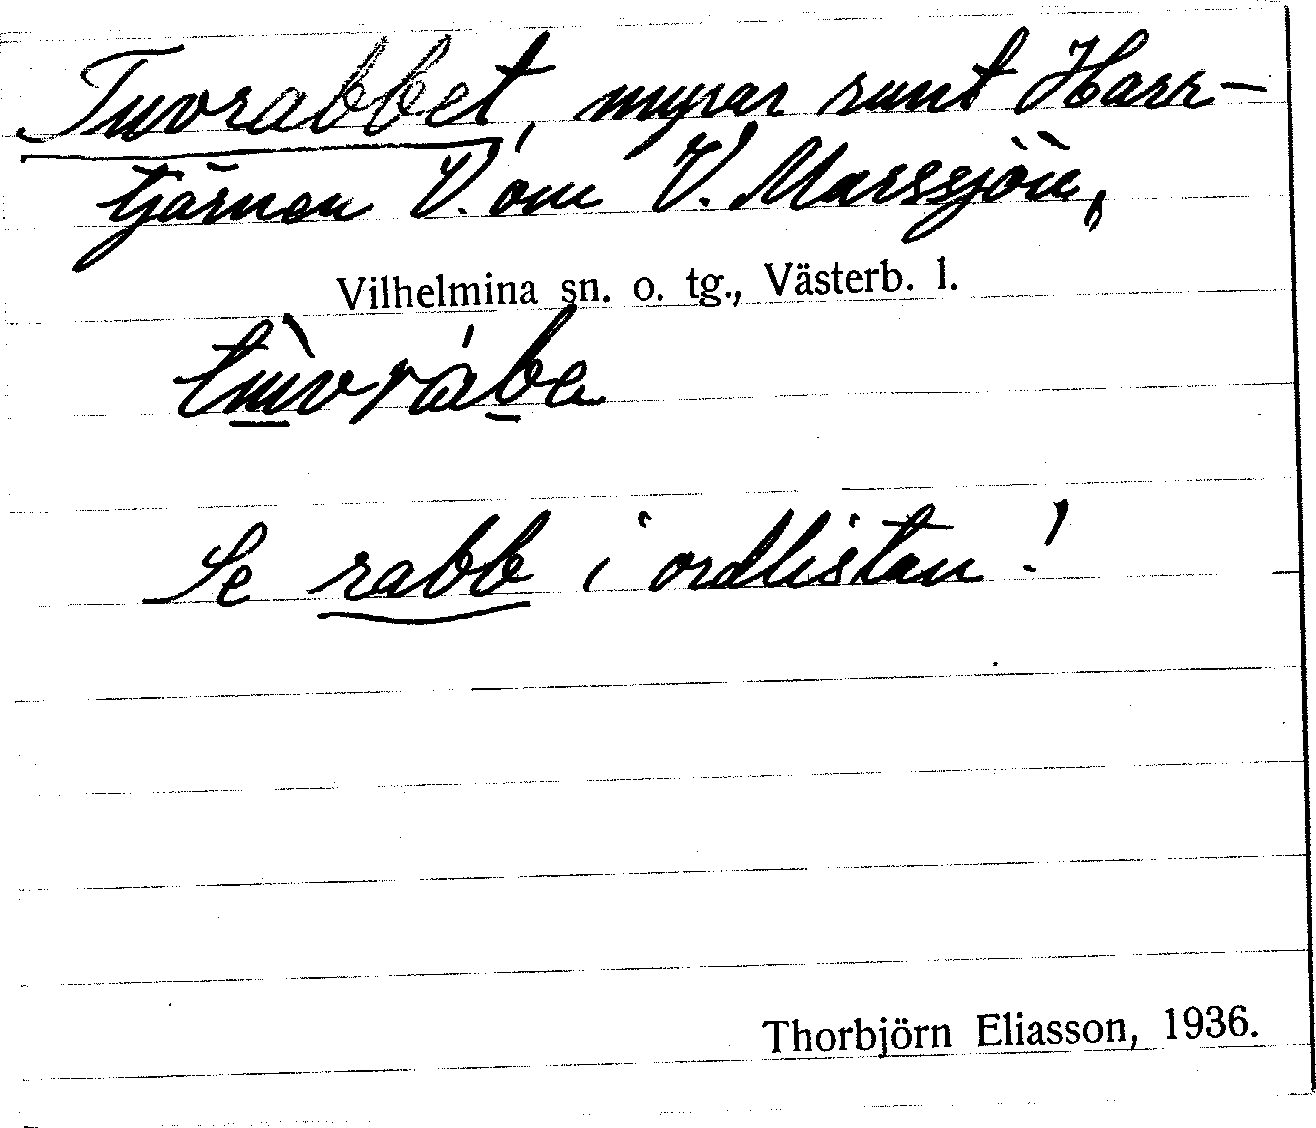 Tuvrabbet, myrar runt Harr-
tjärnen V. om V. Marssjön,
Vilhelmina sn. o. tg., Västerb. l.
Se rabb i ordlistan!
Thorbjörn Eliasson, 1936.